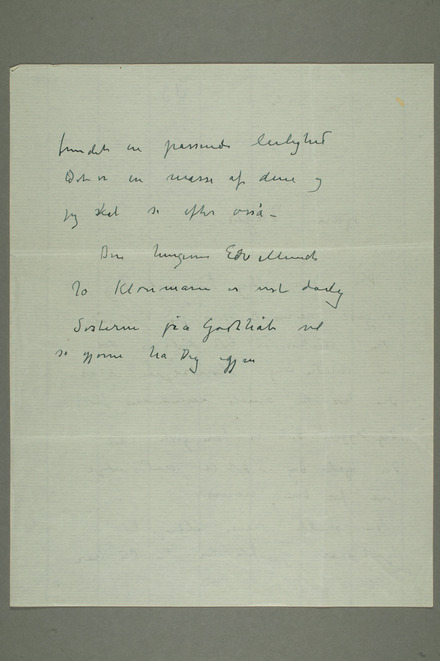 fundet en passende leilighed
Det er en masse af dem og
jeg skal se efter også –
Din hengivne Edv Munch
To Klonmann er vist daarlig
Søstrene på Godthåb vil
så gjerne ha Dig igjen